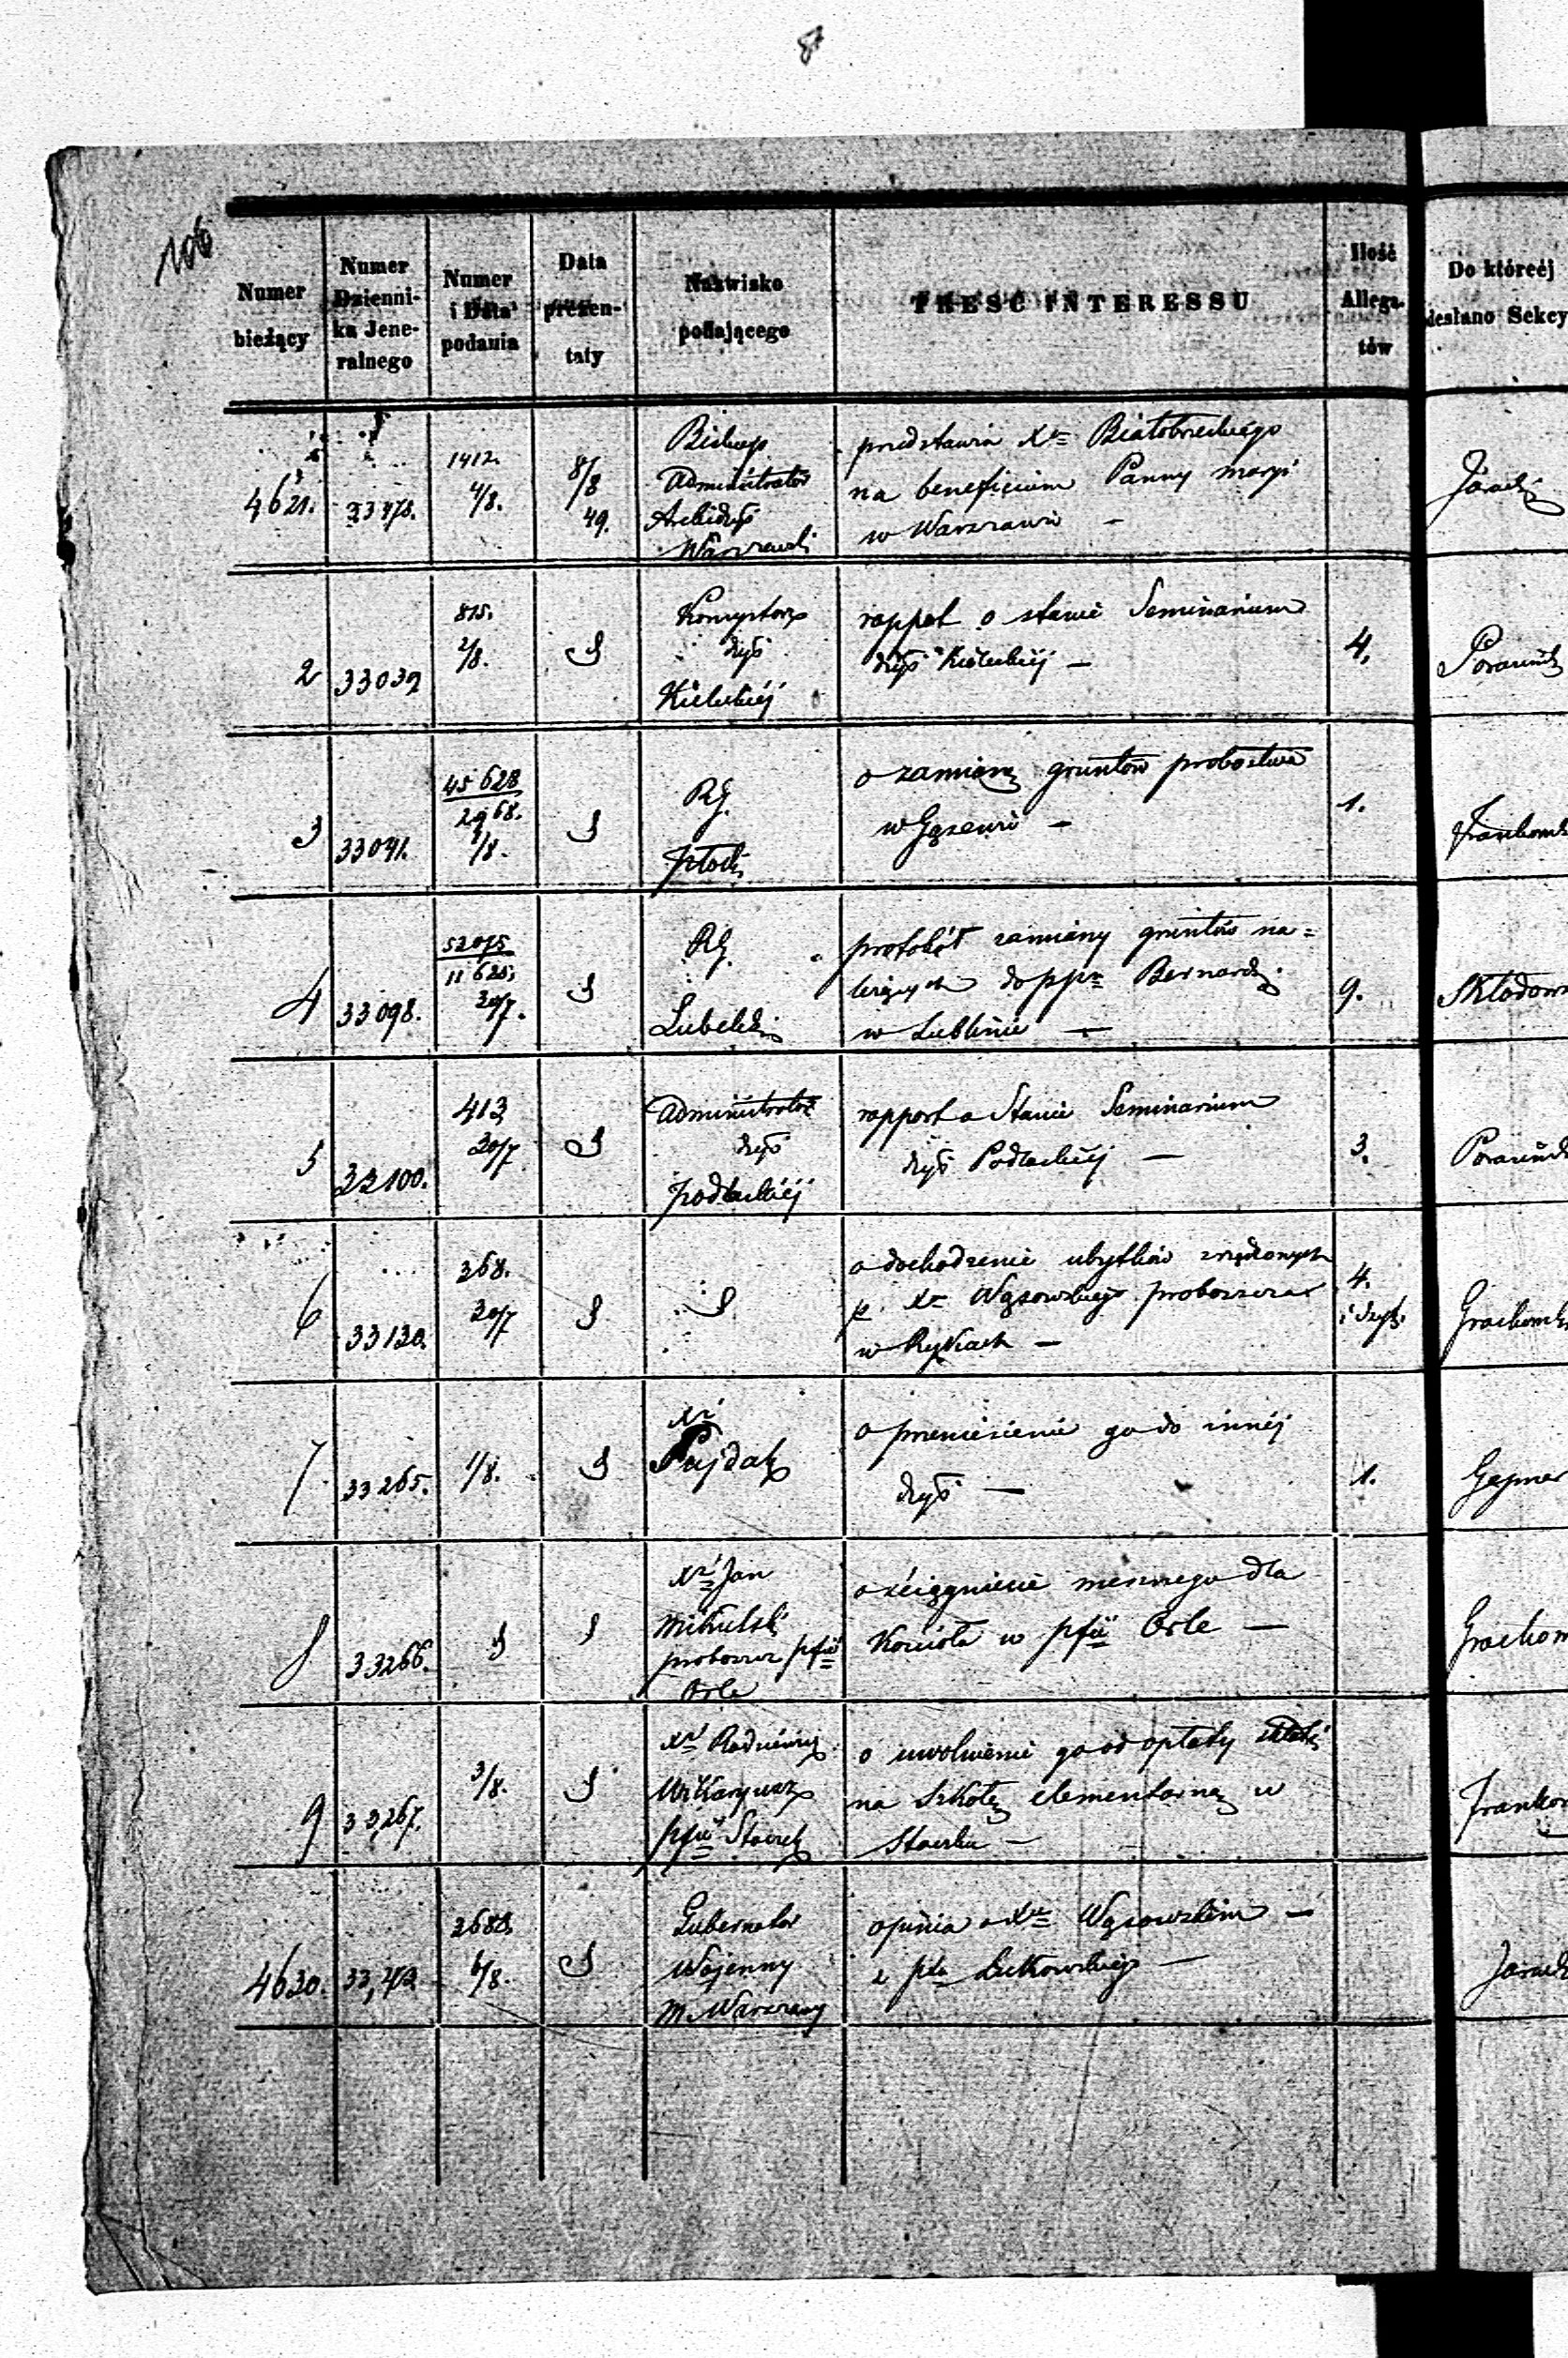 106
Numer bieżący
Numer Dzienni-ka Jene-ralnego
Numer i Data podania
Data prezen-taty
Nazwisko podającego
TREŚĆ INTERESSU
Ilość Allega-tów
Do któreéj
desłano Sekcy
4621. 33478. 1412. 4/8. 8/8 49.
Biskup
Administrator
Archidyś
Warszawski
przedstawia Xa Białobrzeskiego
na beneficium Panny Maryi
w Warszawie —
2 33039 815. 2/8.
Konsystorz
dyś
Kieleckiéj
rapport o stanie Seminarium
dyś Kieleckiéj —
4,
3 33091. 45628 2968. 1/8.
RG.
Płocki
o zamianę gruntów probostwa
w Gąsewie —
1.
4 33098. 52075 11625. 30/7.
RG.
Lubelski
protokół zamiany gruntów na=
leżących do ppn Bernard.
w Lublinie —
9.
Skłodow
5 33100. 413 30/7
Administrator
dyś
Podlaskiéj
rapport o Stanie Seminarium
dyś Podlaskiéj —
3.
6 33130. 368. 30/7
o dochodzenie ubytków zrządzonych
p. Xa Wąsowskiego proboszcza
w Rykach —
4.
7 33265. 1/8.
Xdz
Pajdak
o przeniesienie go do innéj
dyś —
1.
8 33266.
Xdz Jan
Mikulski
proboszcz pfii
Orle
o ściągnięcie mesznego dla
Kościoła w pfii Orle —
9 33,267. 3/8.
Wikaryusz
pfii Stoczek
o uwolnienie go od opłaty składki
na Szkołę elementarną w
Stoczku —
4630. 2688. 6/8.
Gubernator
Wojenny
M. Warszawy
opinia o Xdzu Wąsowskim —
i Xdzu Lutkowskiego —